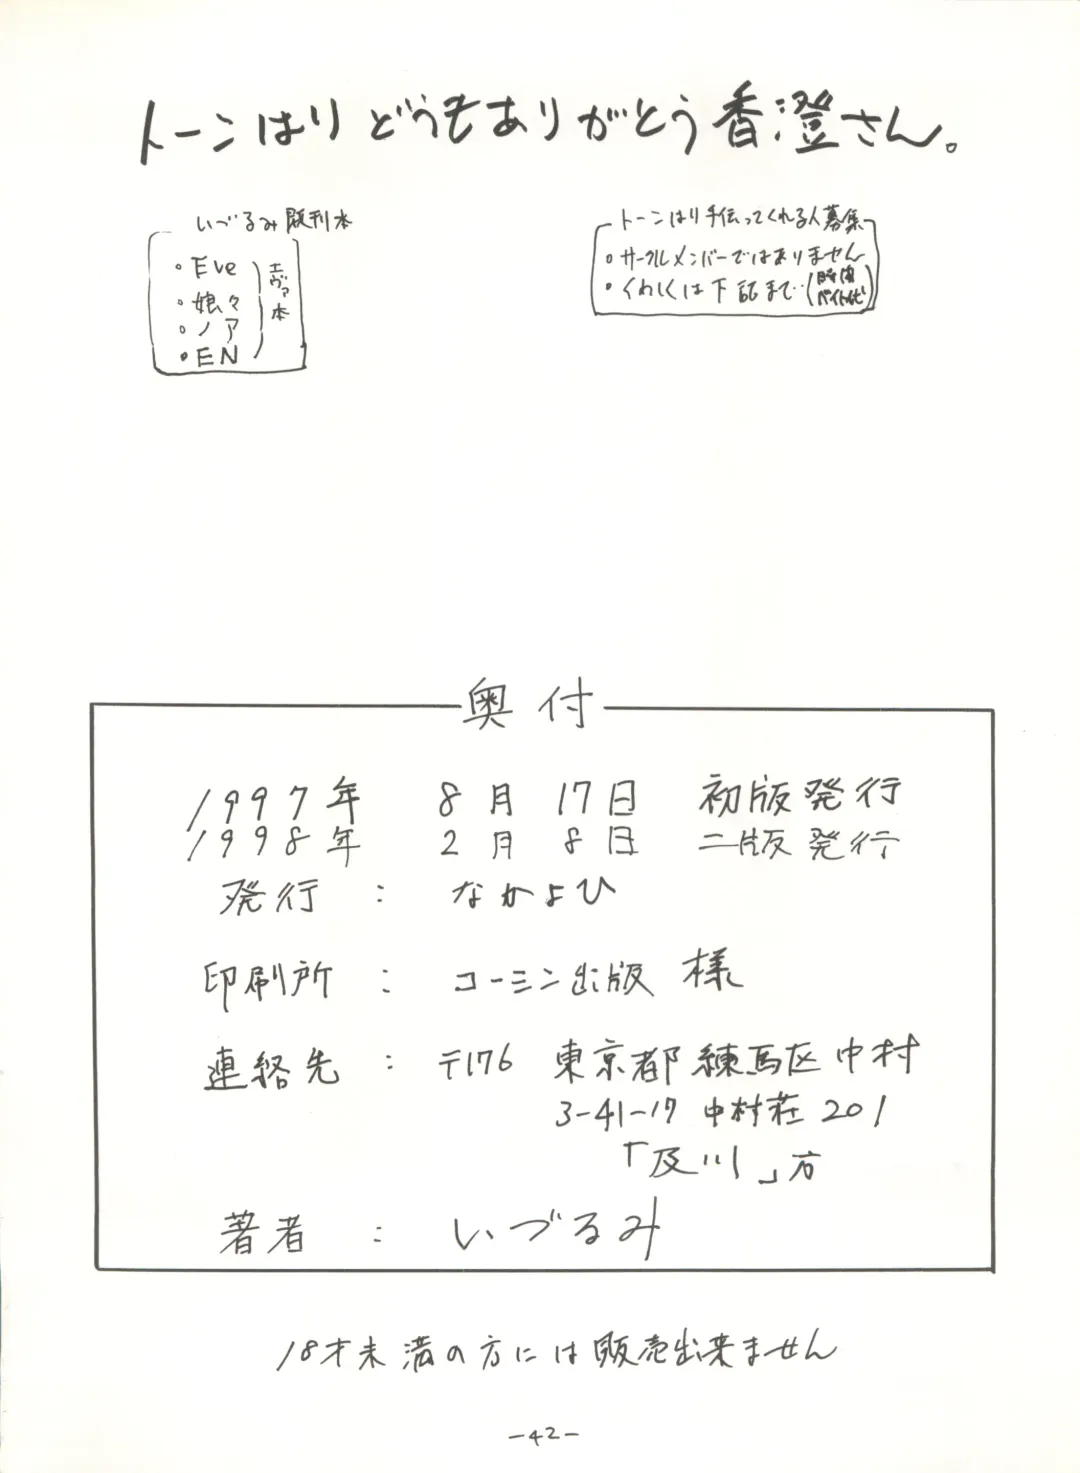 トーンはりどうもありがとう香澄さん。
いづるみ既刊本
・Eve
・娘々
・ノア
・EN
エヴァ本
トーンはり手伝ってくれる人募集
・サークルメンバーではありません
・くわしくは下記まで…(時間バイト代)
奥付
1997年 8月 17日 初版発行
1998年 2月 8日 二版発行
発行 : なかよひ
印刷所 : コーミン出版 様
連絡先 : 〒176 東京都練馬区中村
3-41-17 中村荘 201
「及川」方
著者 : いづるみ
18才未満の方には販売出来ません
-42-